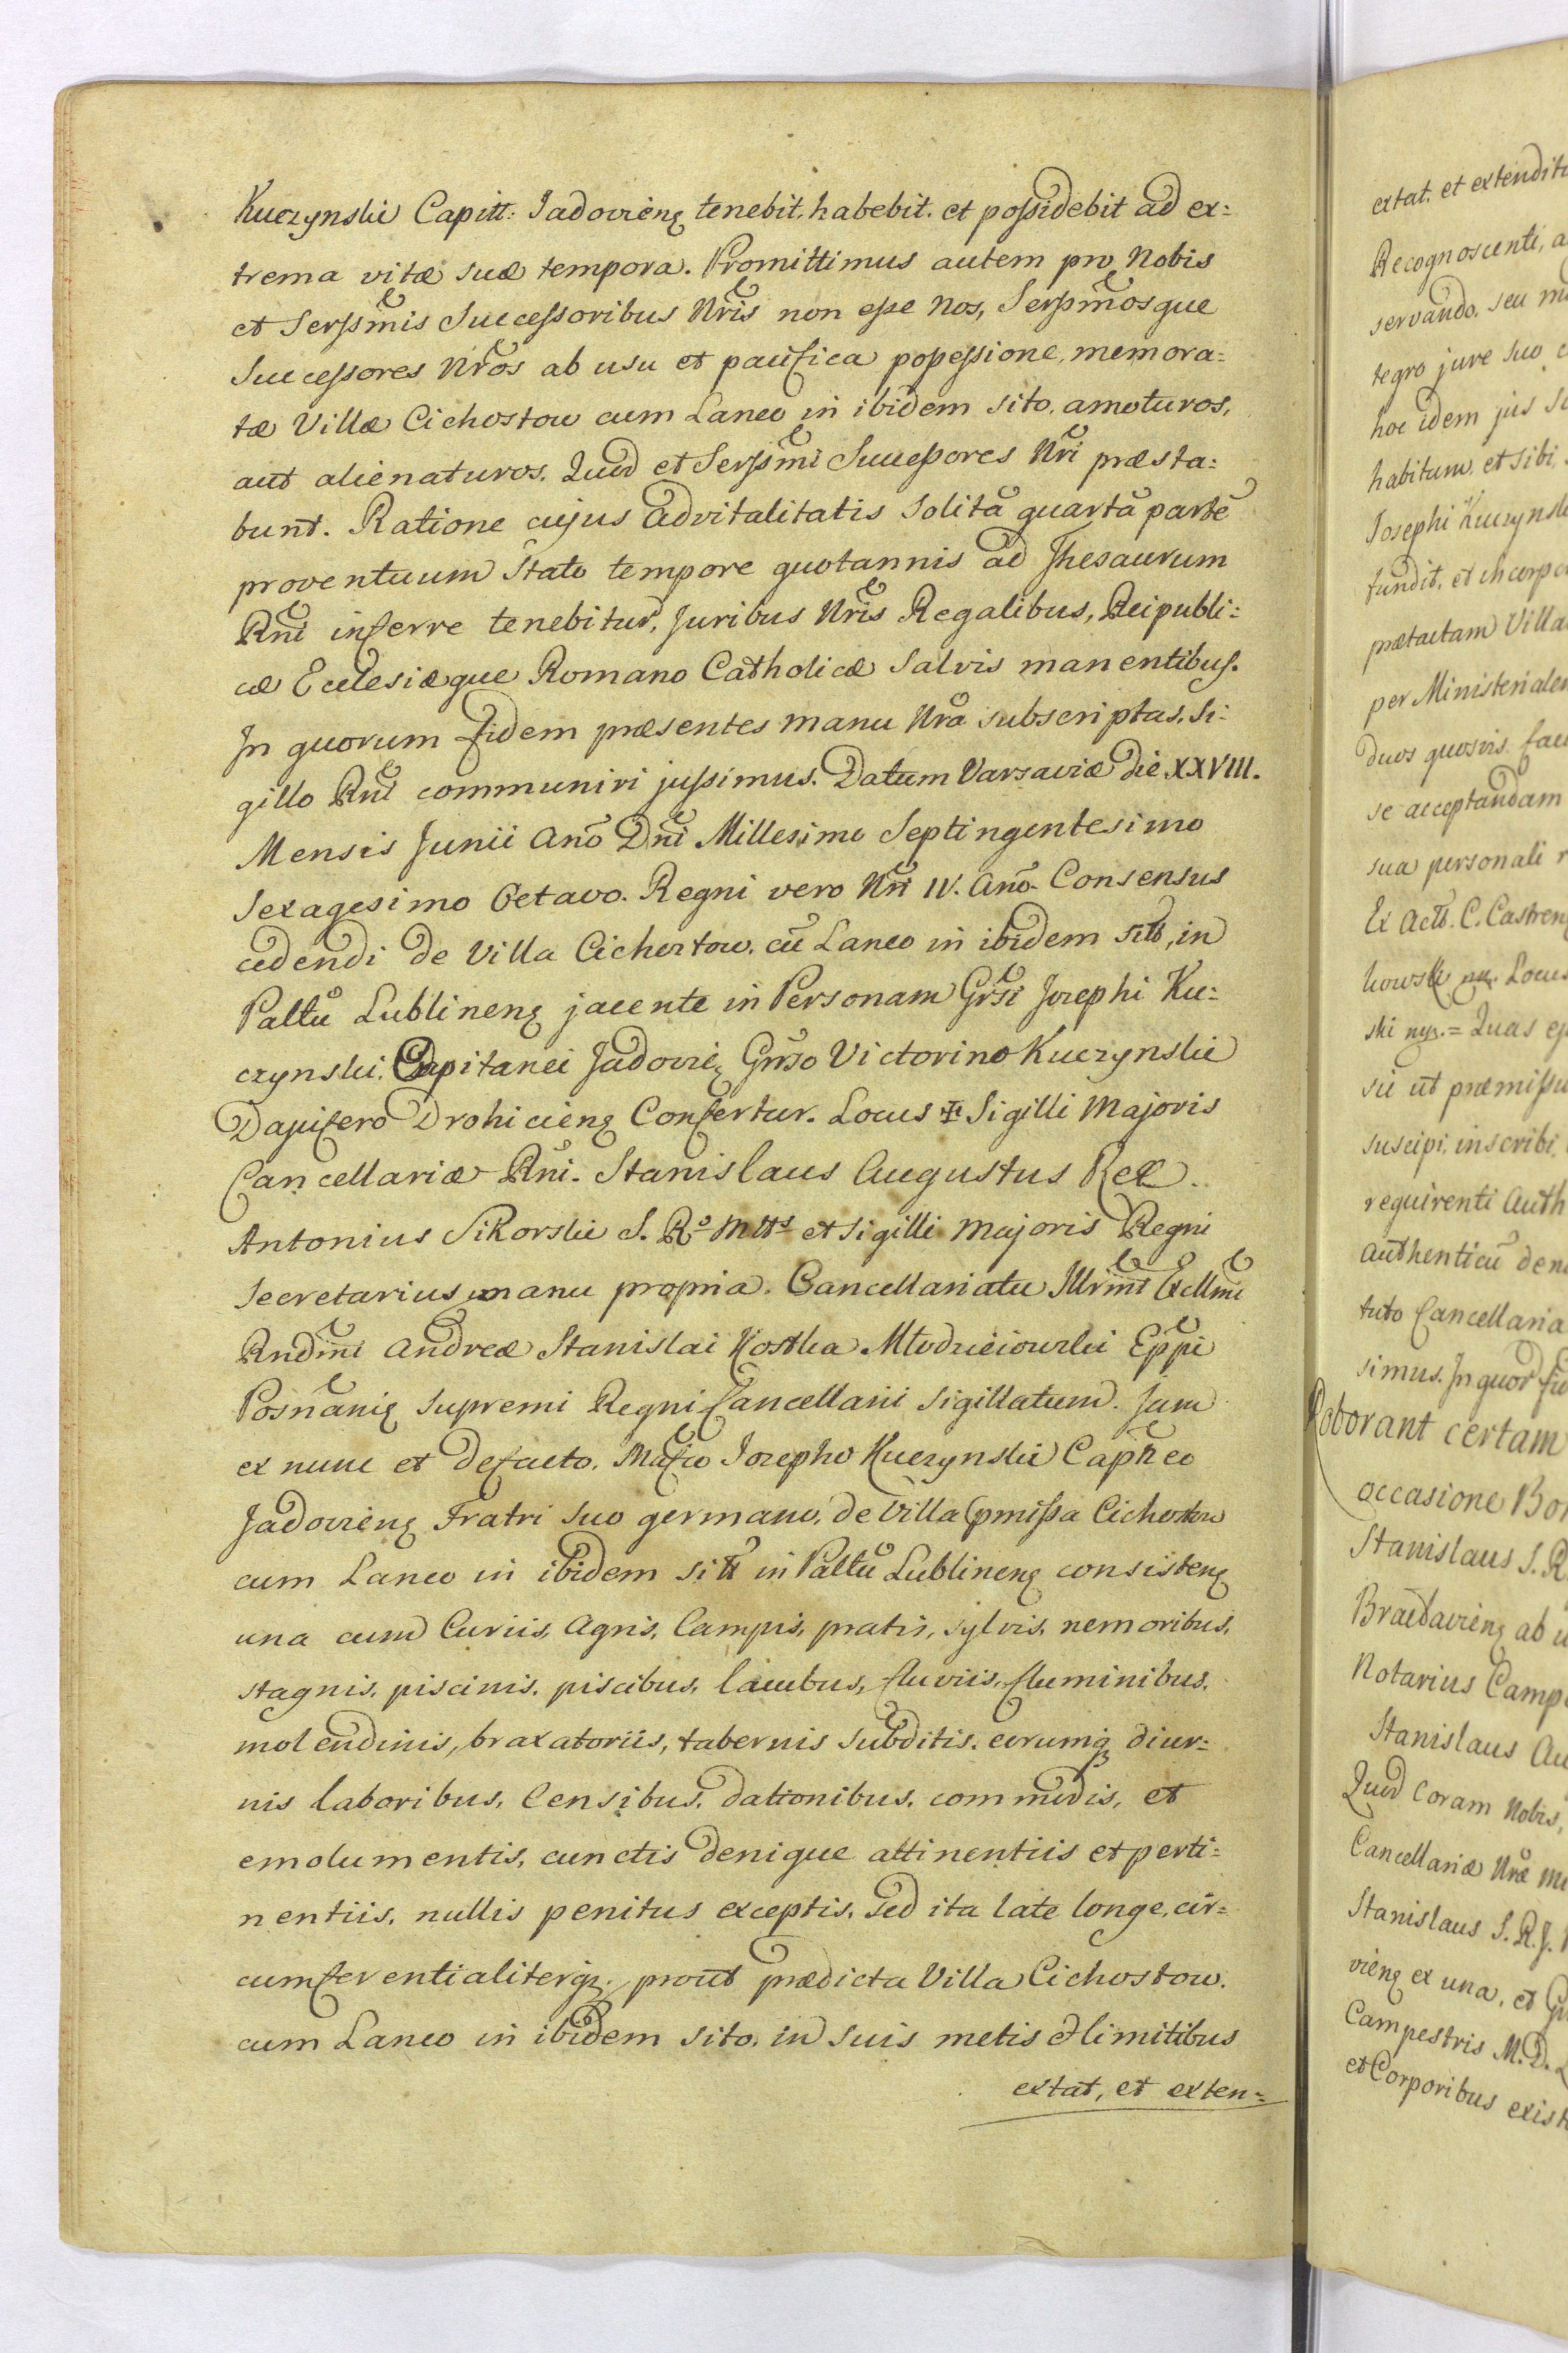 Kuczynski Capitt: Jadovieng tenebit, habebit, et possidebit ad ex=
trema vitæ suæ tempora. Promittimus autem pro Nobis
et Serssmis Successoribus Nris non esse Nos, Serssmosque
Successores Nros ab usu et paucifica possessione, memora=
tæ Villæ Cichostow cum Laneo in ibidem sito, amoturos,
aut alienaturos. Quod et Serssmi Successores Nri præsta=
bunt. Ratione cujus advitalitatis Solitã quartã partẽ
proventuum Stato tempore quotannis ad Thesaurum
Rni inferre tenebitur, Juribus Nris Regalibus, Reipubli=
cæ Ecclesiæque Romano Catholicæ Salvis manentibus.
In quorum fidem præsentes manu Nra subscriptas, Si=
gillo Rni communiri jussimus. Datum Varsaviæ die XXVIII.
Mensis Junii Anõ Dni Millesimo Septingentesimo
Sexagesimo Octavo. Regni vero Nri IV. Anõ. Consensus
cedendi de Villa Cichostow, cũ Laneo in ibidem sito, in
Palttũ Lublineng jacente in Personam Grsi Josephi Ku=
czynski, Capitanei Jadovieg Gnoso Victorino Kuczynski
Dapifero Drohicieng Confertur. Locus Sigilli Majoris
Cancellariæ Rni. Stanislaus Augustus Rex.
Antonius Sikorski S. Rº Mtts et Sigilli Majoris Regni
Secretarius manu propria. Cancellariatu Illrmi Excllmi
Rndmi Andreæ Stanislai Kostka Młodzieiowski Eppi
Posnanig Supremi Regni Cancellarii Sigillatum. Jam
ex nunc et defacto. Mafco Josepho Kuczynski Capneo
Jadovieng Fratri Suo germano, de Villa pmissa Cichostow
cum Laneo in ibidem sitt in Palttũ Lublineng consisteng
una cum Curiis, Agris, Campis, pratis, sylvis, nemoribus,
stagnis, piscinis, piscibus, lacubus, fluviis, fluminibus,
molendinis, braxatoriis, tabernis Subditis, eorumq diur=
nis laboribus, Censibus, dationibus, commodis, et
emolumentis, cunctis denique attinentiis et perti=
nentiis, nullis penitus exceptis, Sed ita late longe, cir=
cumferentialiterq, prout prædicta Villa Cichostow.
cum Laneo in ibidem sito, in suis metis & limitibus
extat, et exten=
extat, et extendit
Recognoscenti, a
servando, seu m
tegro jure suo
hoc idem jus
habitum, et sibi,
Josephi Kuczynsk
fundit, et incorp
prætactam Villa
per Ministeriale
duos quosvis fa
se acceptandam
sua personali r
Ex Actt. C. Castren
howski Locus
ski = Quas
sic ut præmissu
suscipi, inscribi,
requirenti Auth
authenticũ den
tuto Cancellaria
simus. In quor fi
Roborant certam
occasione Bo
Stanislaus S. R
Bracłavieng ab u
Notarius Camp
Stanislaus Au
Quod Coram Nobis,
Cancellariæ Nræ m
Stanislaus S. R. J.
vieng ex una, et G
Campestris M. D. L
et Corporibus exist